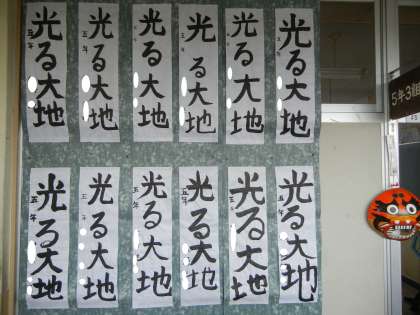 光る大地
五年
光る大地
五年
光る大地
五年
光る大地
五年
光る大地
五年
光る大地
五年
光る大地
五年
光る大地
五年
光る大地
五年
光る大地
五年
光る大地
五年
光る大地
五年
5年3組